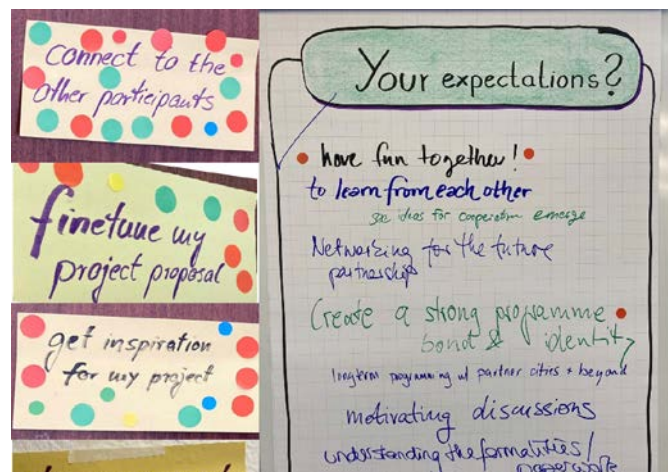 Connect to the
other participants
finetune my
project proposal
get inspiration
for my project
Your expectations?
have fun together!
to learn from each other
see ideas for cooperation emerge
Networking for the future
partnerships
Create a strong programme
bond & identity
longterm programming w/ partner cities + beyond
motivating discussions
understanding the formalities/